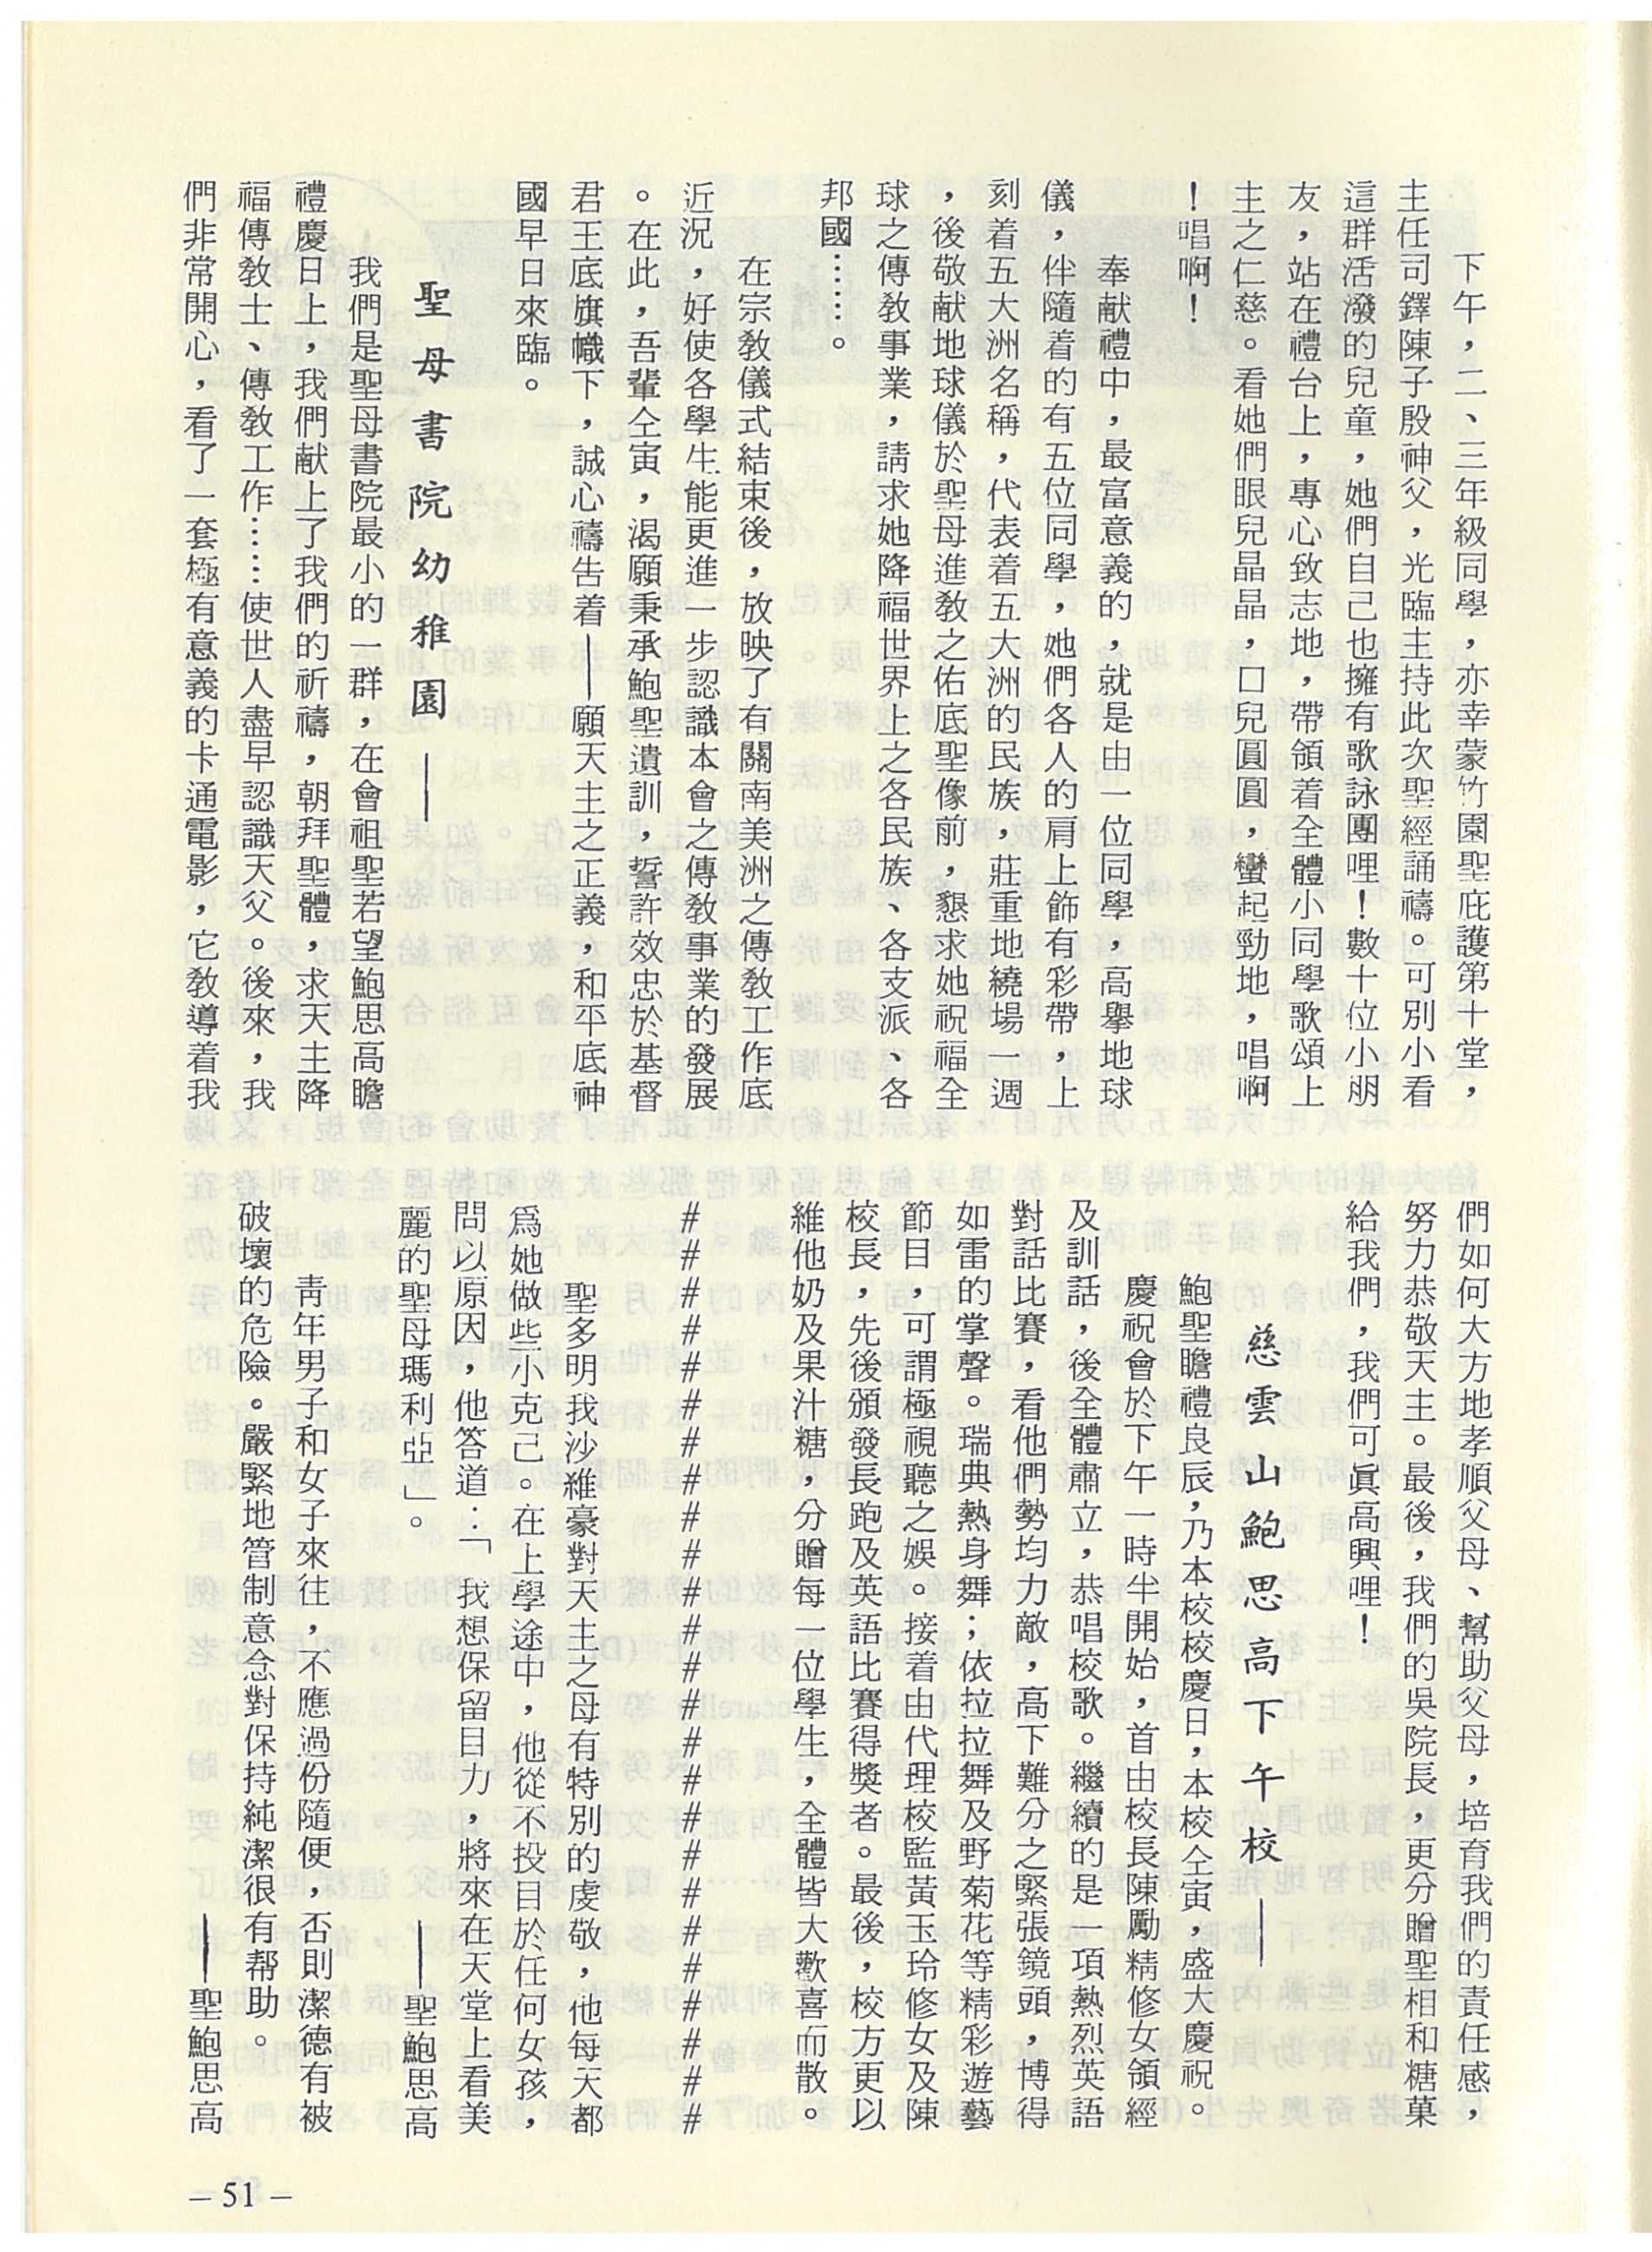 下午，二、三年級同學，亦幸蒙竹園聖庇護第十堂，
主任司鐸陳子殷神父，光臨主持此次聖經誦禱。可別小看
這群活潑的兒童，她們自己也擁有歌詠團哩！數十位小朋
友，站在禮台上，專心致志地，帶領着全體小同學歌頌上
主之仁慈。看她們眼兒晶晶，口兒圓圓，蠻起勁地，唱啊
！唱啊！
奉献禮中，最富意義的，就是由一位同學，高擧地球
儀，伴隨着的有五位同學，她們各人的肩上飾有彩帶，上
刻着五大洲名稱，代表着五大洲的民族，莊重地繞場一週
，後敬献地球儀於聖母進敎之佑底聖像前，懇求她祝福全
球之傳敎事業，請求她降福世界上之各民族、各支派、各
邦國……。
在宗敎儀式結束後，放映了有關南美洲之傳敎工作底
近況，好使各學生能更進一步認識本會之傳敎事業的發展
。在此，吾輩仝寅，渴願秉承鮑聖遺訓，誓許效忠於基督
君王底旗幟下，誠心禱告着——願天主之正義，和平底神
國早日來臨。
聖母書院幼稚園——
我們是聖母書院最小的一群，在會祖聖若望鮑思高瞻
禮慶日上，我們献上了我們的祈禱，朝拜聖體，求天主降
福傳敎士、傳敎工作……使世人盡早認識天父。後來，我
們非常開心，看了一套極有意義的卡通電影，它敎導着我
們如何大方地孝順父母、幫助父母，培育我們的責任感，
努力恭敬天主。最後，我們的吳院長，更分贈聖相和糖菓
給我們，我們可眞高興哩！
慈雲山鮑思高下午校——
鮑聖瞻禮良辰，乃本校校慶日，本校仝寅，盛大慶祝。
慶祝會於下午一時半開始，首由校長陳勵精修女領經
及訓話，後全體肅立，恭唱校歌。繼續的是一項熱烈英語
對話比賽，看他們勢均力敵，高下難分之緊張鏡頭，博得
如雷的掌聲。瑞典熱身舞；依拉拉舞及野菊花等精彩遊藝
節目，可謂極視聽之娛。接着由代理校監黃玉玲修女及陳
校長，先後頒發長跑及英語比賽得獎者。最後，校方更以
維他奶及果汁糖，分贈每一位學生，全體皆大歡喜而散。
# # # # # # # # # # # # # # # # # # # # # # # # #
聖多明我沙維豪對天主之母有特別的虔敬，他每天都
爲她做些小克己。在上學途中，他從不投目於任何女孩，
問以原因，他答道：「我想保留目力，將來在天堂上看美
麗的聖母瑪利亞」。
——聖鮑思高
靑年男子和女子來往，不應過份隨便，否則潔德有被
破壞的危險。嚴緊地管制意念對保持純潔很有帮助。
——聖鮑思高
– 51 –